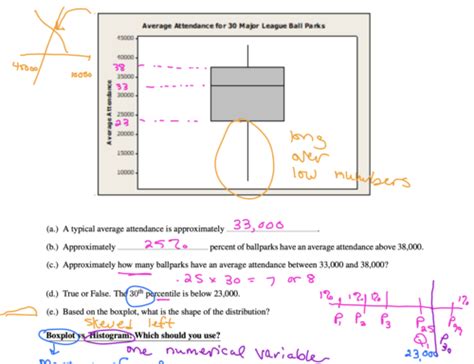 Average Attendance for 30 Major League Ball Parks
45000
40000
38
35000
33
30000
25000
23
20000
15000
10000
Average Attendance
45000
10000
long
over
low numbers
(a.) A typical average attendance is approximately 33,000
(b.) Approximately 25% percent of ballparks have an average attendance above 38,000.
(c.) Approximately how many ballparks have an average attendance between 33,000 and 38,000?
.25 x 30 = 7 or 8
(d.) True or False. The 30th percentile is below 23,000.
1% 1% 1%
P1 P2 P3 P25 P30 P99
Q1
23,000
(e.) Based on the boxplot, what is the shape of the distribution?
skewed left
Boxplot vs. Histogram: Which should you use?
one numerical variable